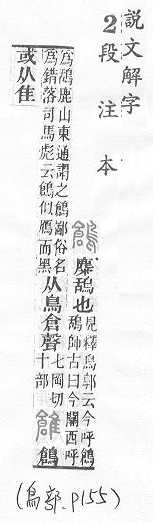 說文解字
2段注本
鶬 麋鴰也 見釋鳥郭云今呼鶬
鴰師古曰今關西呼
爲鴰鹿山東通謂之鶬鄙俗名
爲錯落司馬彪云鶬似鴈而黑
从鳥倉聲 七岡切
十部
鶬
或从隹
(鳥部.P155)